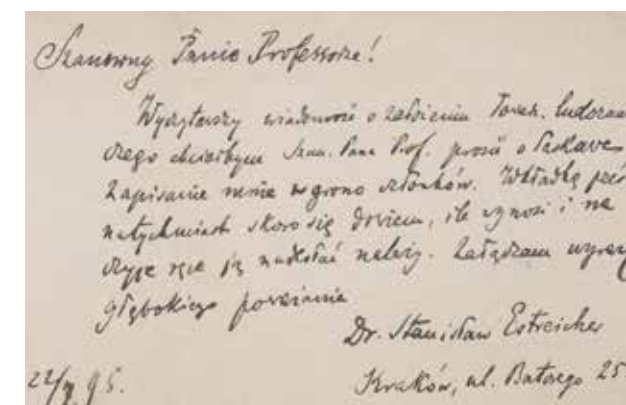 Szanowny Panie Professorze!
Wyczytawszy wiadomość o założeniu Towarz. ludoznaw
czego chciałbym Szan. Pana Prof. prosić o łaskawe
zapisanie mnie w grono członków. Wkładkę prześ
natychmiast skoro się dowiem, ile wynosi i na
czyje ręce ją nadesłać należy. Załączam wyrazy
głębokiego poważania
Dr. Stanisław Estreicher
Kraków, ul. Batorego 25.
22/ 95.